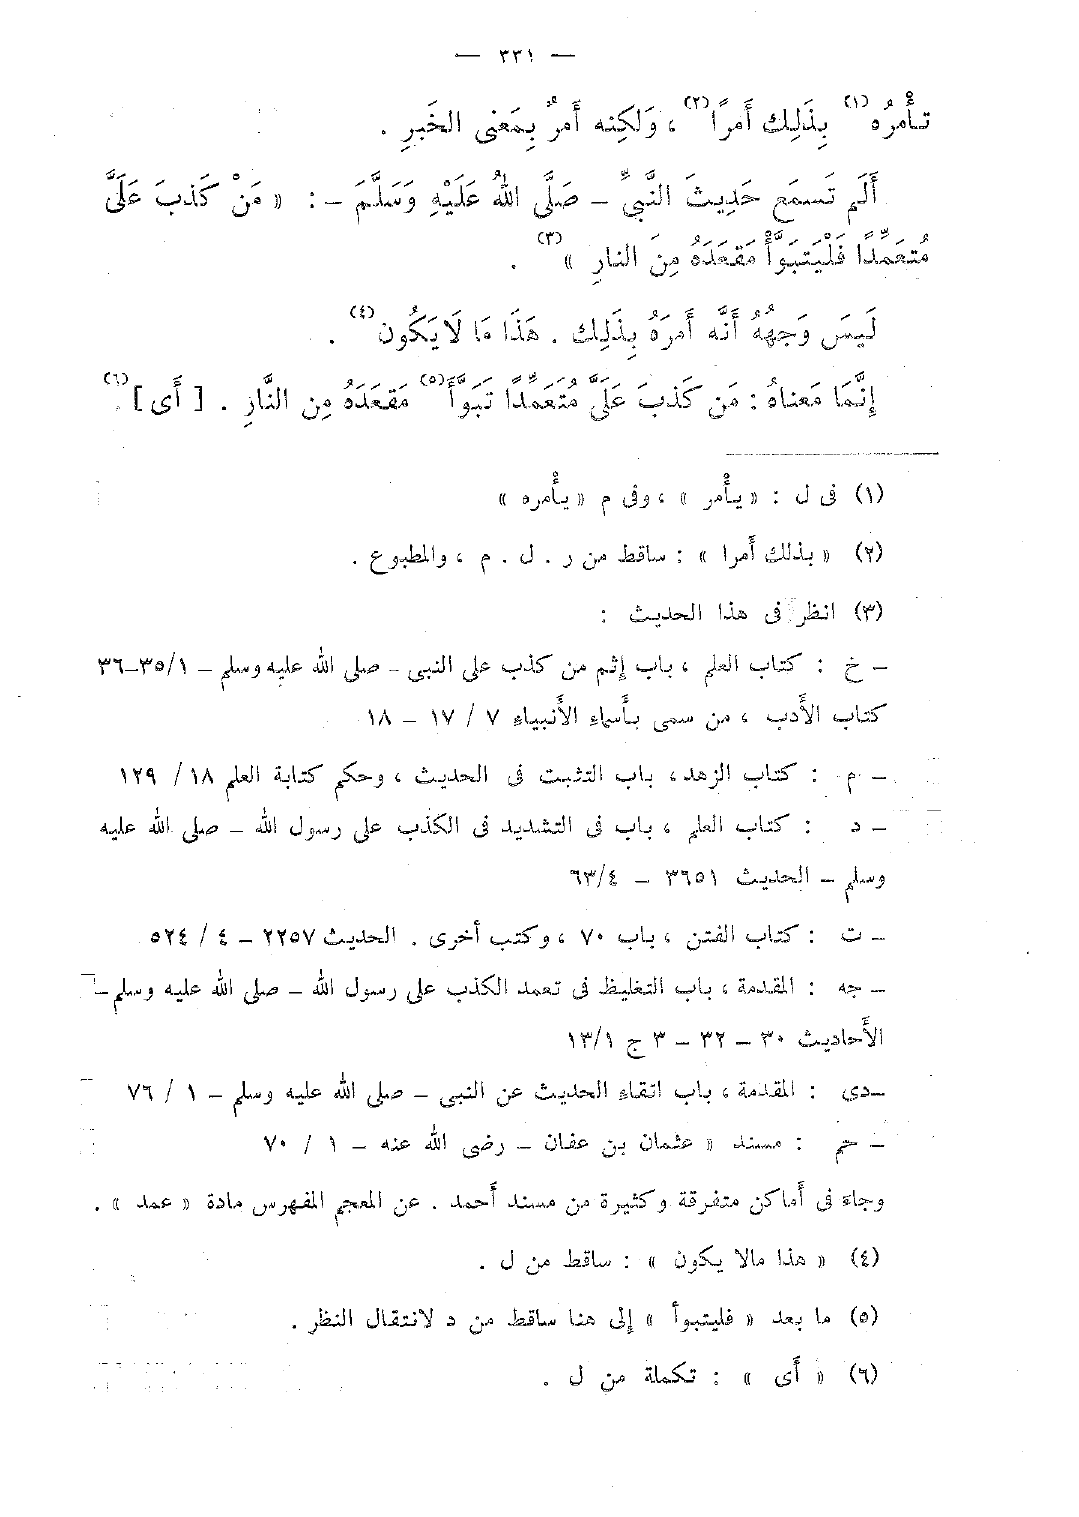 — ٣٣١ —
تأْمُرُه (١) بِذَلِك أَمرًا (٢) ، وَلكِنه أَمرٌ بِمَعنى الخَبرِ .
أَلَم تَسمَع حَدِيثَ النَّبىِّ – صَلَّى اللهُ عَلَيْهِ وَسَلَّمَ – : « مَنْ كَذبَ عَلَىَّ
مُتعَمِّدًا فَلْيَتبَوَّأْ مَقعَدَهُ مِنَ النارِ » (٣) .
لَيسَ وَجهُهُ أَنَّه أَمرَهُ بِذَلِك . هَذَا مَا لَا يَكُون (٤) .
إِنَّمَا مَعناهُ : مَن كَذبَ عَلَىَّ مُتَعَمِّدًا تَبَوَّأَ (٥) مَقعَدَهُ مِن النَّارِ . [ أَى ] (٦) .
(١) فى ل : « يأْمر » ، وفى م « يأْمره »
(٢) « بذلك أَمرا » : ساقط من ر . ل . م ، والمطبوع .
(٣) انظر فى هذا الحديث :
– خ : كتاب العلم ، باب إثم من كذب على النبى – صلى الله عليه وسلم – ١/‏٣٥–٣٦
كتاب الأَدب ، من سمى بأَسماء الأَنبياء ٧ / ١٧ – ١٨
– م : كتاب الزهد ، باب التثبت فى الحديث ، وحكم كتابة العلم ١٨ / ١٢٩
– د : كتاب العلم ، باب فى التشديد فى الكذب على رسول الله – صلى الله عليه
وسلم – الحديث ٣٦٥١ – ٤/‏٦٣
– ت : كتاب الفتن ، باب ٧٠ ، وكتب أخرى . الحديث ٢٢٥٧ – ٤ / ٥٢٤
– جه : المقدمة ، باب التغليظ فى تعمد الكذب على رسول الله – صلى الله عليه وسلم –
الأَحاديث ٣٠ – ٣٢ – ٣ ج ١/‏١٣
– دى : المقدمة ، باب اتقاء الحديث عن النبى – صلى الله عليه وسلم – ١ / ٧٦
– حم : مسند « عثمان بن عفان – رضى الله عنه – ١ / ٧٠
وجاءَ فى أَماكن متفرقة وكثيرة من مسند أَحمد . عن المعجم المفهرس مادة « عمد » .
(٤) « هذا مالا يكون » : ساقط من ل .
(٥) ما بعد « فليتبوأ » إلى هنا ساقط من د لانتقال النظر .
(٦) « أَى » : تكملة من ل .